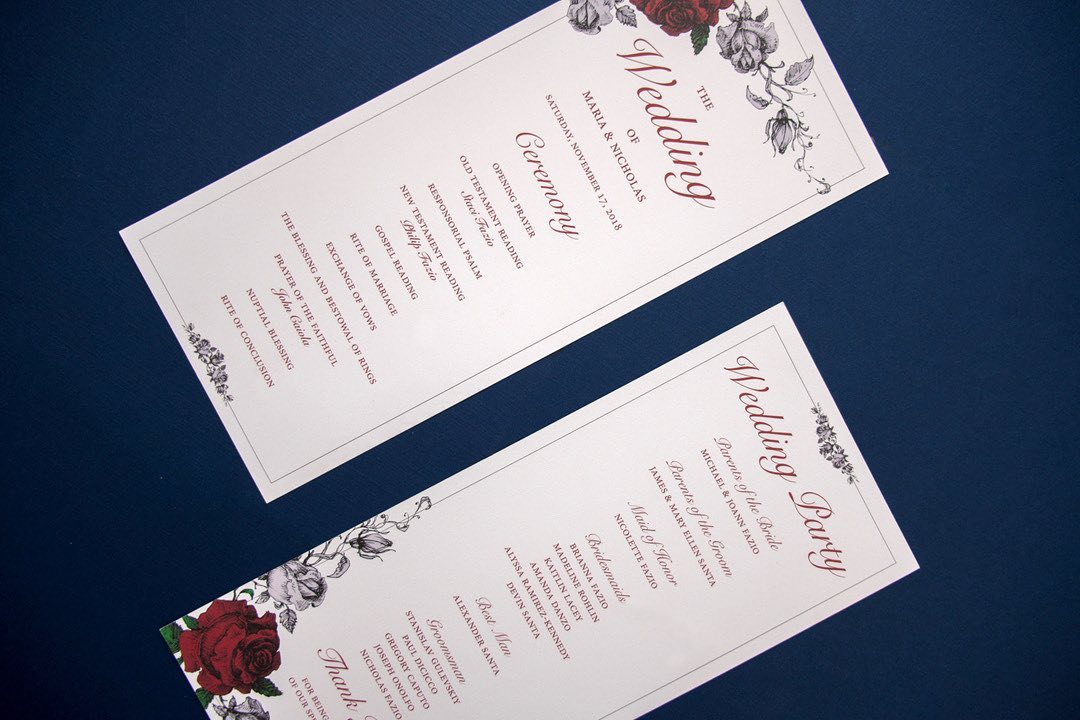 THE
Wedding
OF
MARIA & NICHOLAS
SATURDAY, NOVEMBER 17, 2018
Ceremony
OPENING PRAYER
OLD TESTAMENT READING
Staci Fazio
RESPONSORIAL PSALM
NEW TESTAMENT READING
Philip Fazio
GOSPEL READING
RITE OF MARRIAGE
EXCHANGE OF VOWS
THE BLESSING AND BESTOWAL OF RINGS
PRAYER OF THE FAITHFUL
John Caiola
NUPTIAL BLESSING
RITE OF CONCLUSION
Wedding Party
Parents of the Bride
MICHAEL & JOANN FAZIO
Parents of the Groom
JAMES & MARY ELLEN SANTA
Maid of Honor
NICOLETTE FAZIO
Bridesmaids
BRIANNA FAZIO
MADELINE ROHLIN
KAITLIN LACEY
AMANDA DANZO
ALYSSA RAMIREZ-KENNEDY
DEVIN SANTA
Best Man
ALEXANDER SANTA
Groomsman
STANISLAV GULEVSKIY
PAUL DICICCO
GREGORY CAPUTO
JOSEPH ONOLFO
NICHOLAS FAZIO
Thank
FOR BEING
OF OUR